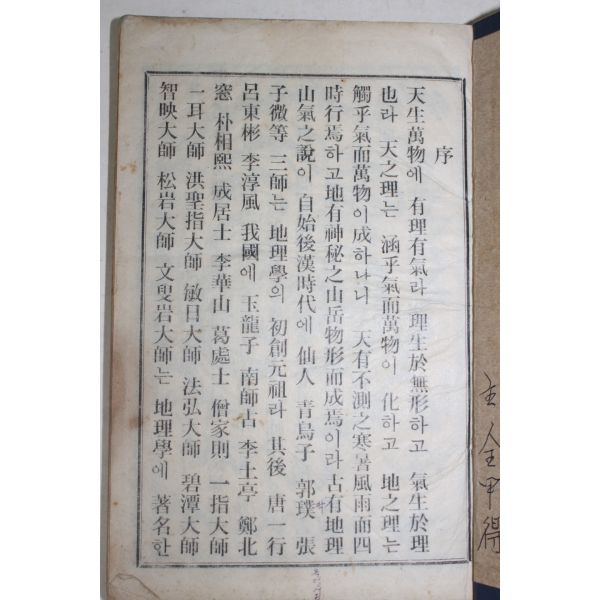 序
天生萬物에 有理有氣라 理生於無形하고 氣生於理
也라 天之理는 涵乎氣而萬物이 化하고 地之理는
觸乎氣而萬物이成하나니 天有不測之寒暑風雨而四
時行焉하고地有神秘之山岳物形而成焉이라古有地理
山氣之說이 自始後漢時代에 仙人 靑烏子 郭璞 張
子微等 三師는 地理學의 初創元祖라 其後 唐一行
呂東彬 李淳風 我國에 玉龍子 南師古 李土亭 鄭北
窓 朴相熙 成居士 李華山 葛處士 僧家則 一指大師
一耳大師 洪聖指大師 敏日大師 法弘大師 碧潭大師
智映大師 松岩大師 文叟岩大師는 地理學에 著名한
主 金甲得